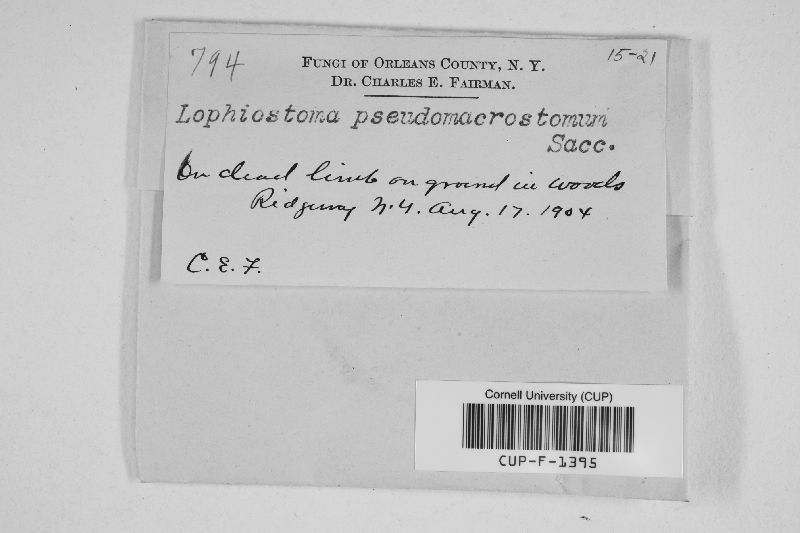 794
15-21
FUNGI OF ORLEANS COUNTY, N. Y.
DR. CHARLES E. FAIRMAN.
Lophiostoma pseudomacrostomum
Sacc.
On dead limb on ground in woods
Ridgeway N.Y. Aug. 17. 1904
C. E. F.
Cornell University (CUP)
CUP-F-1395